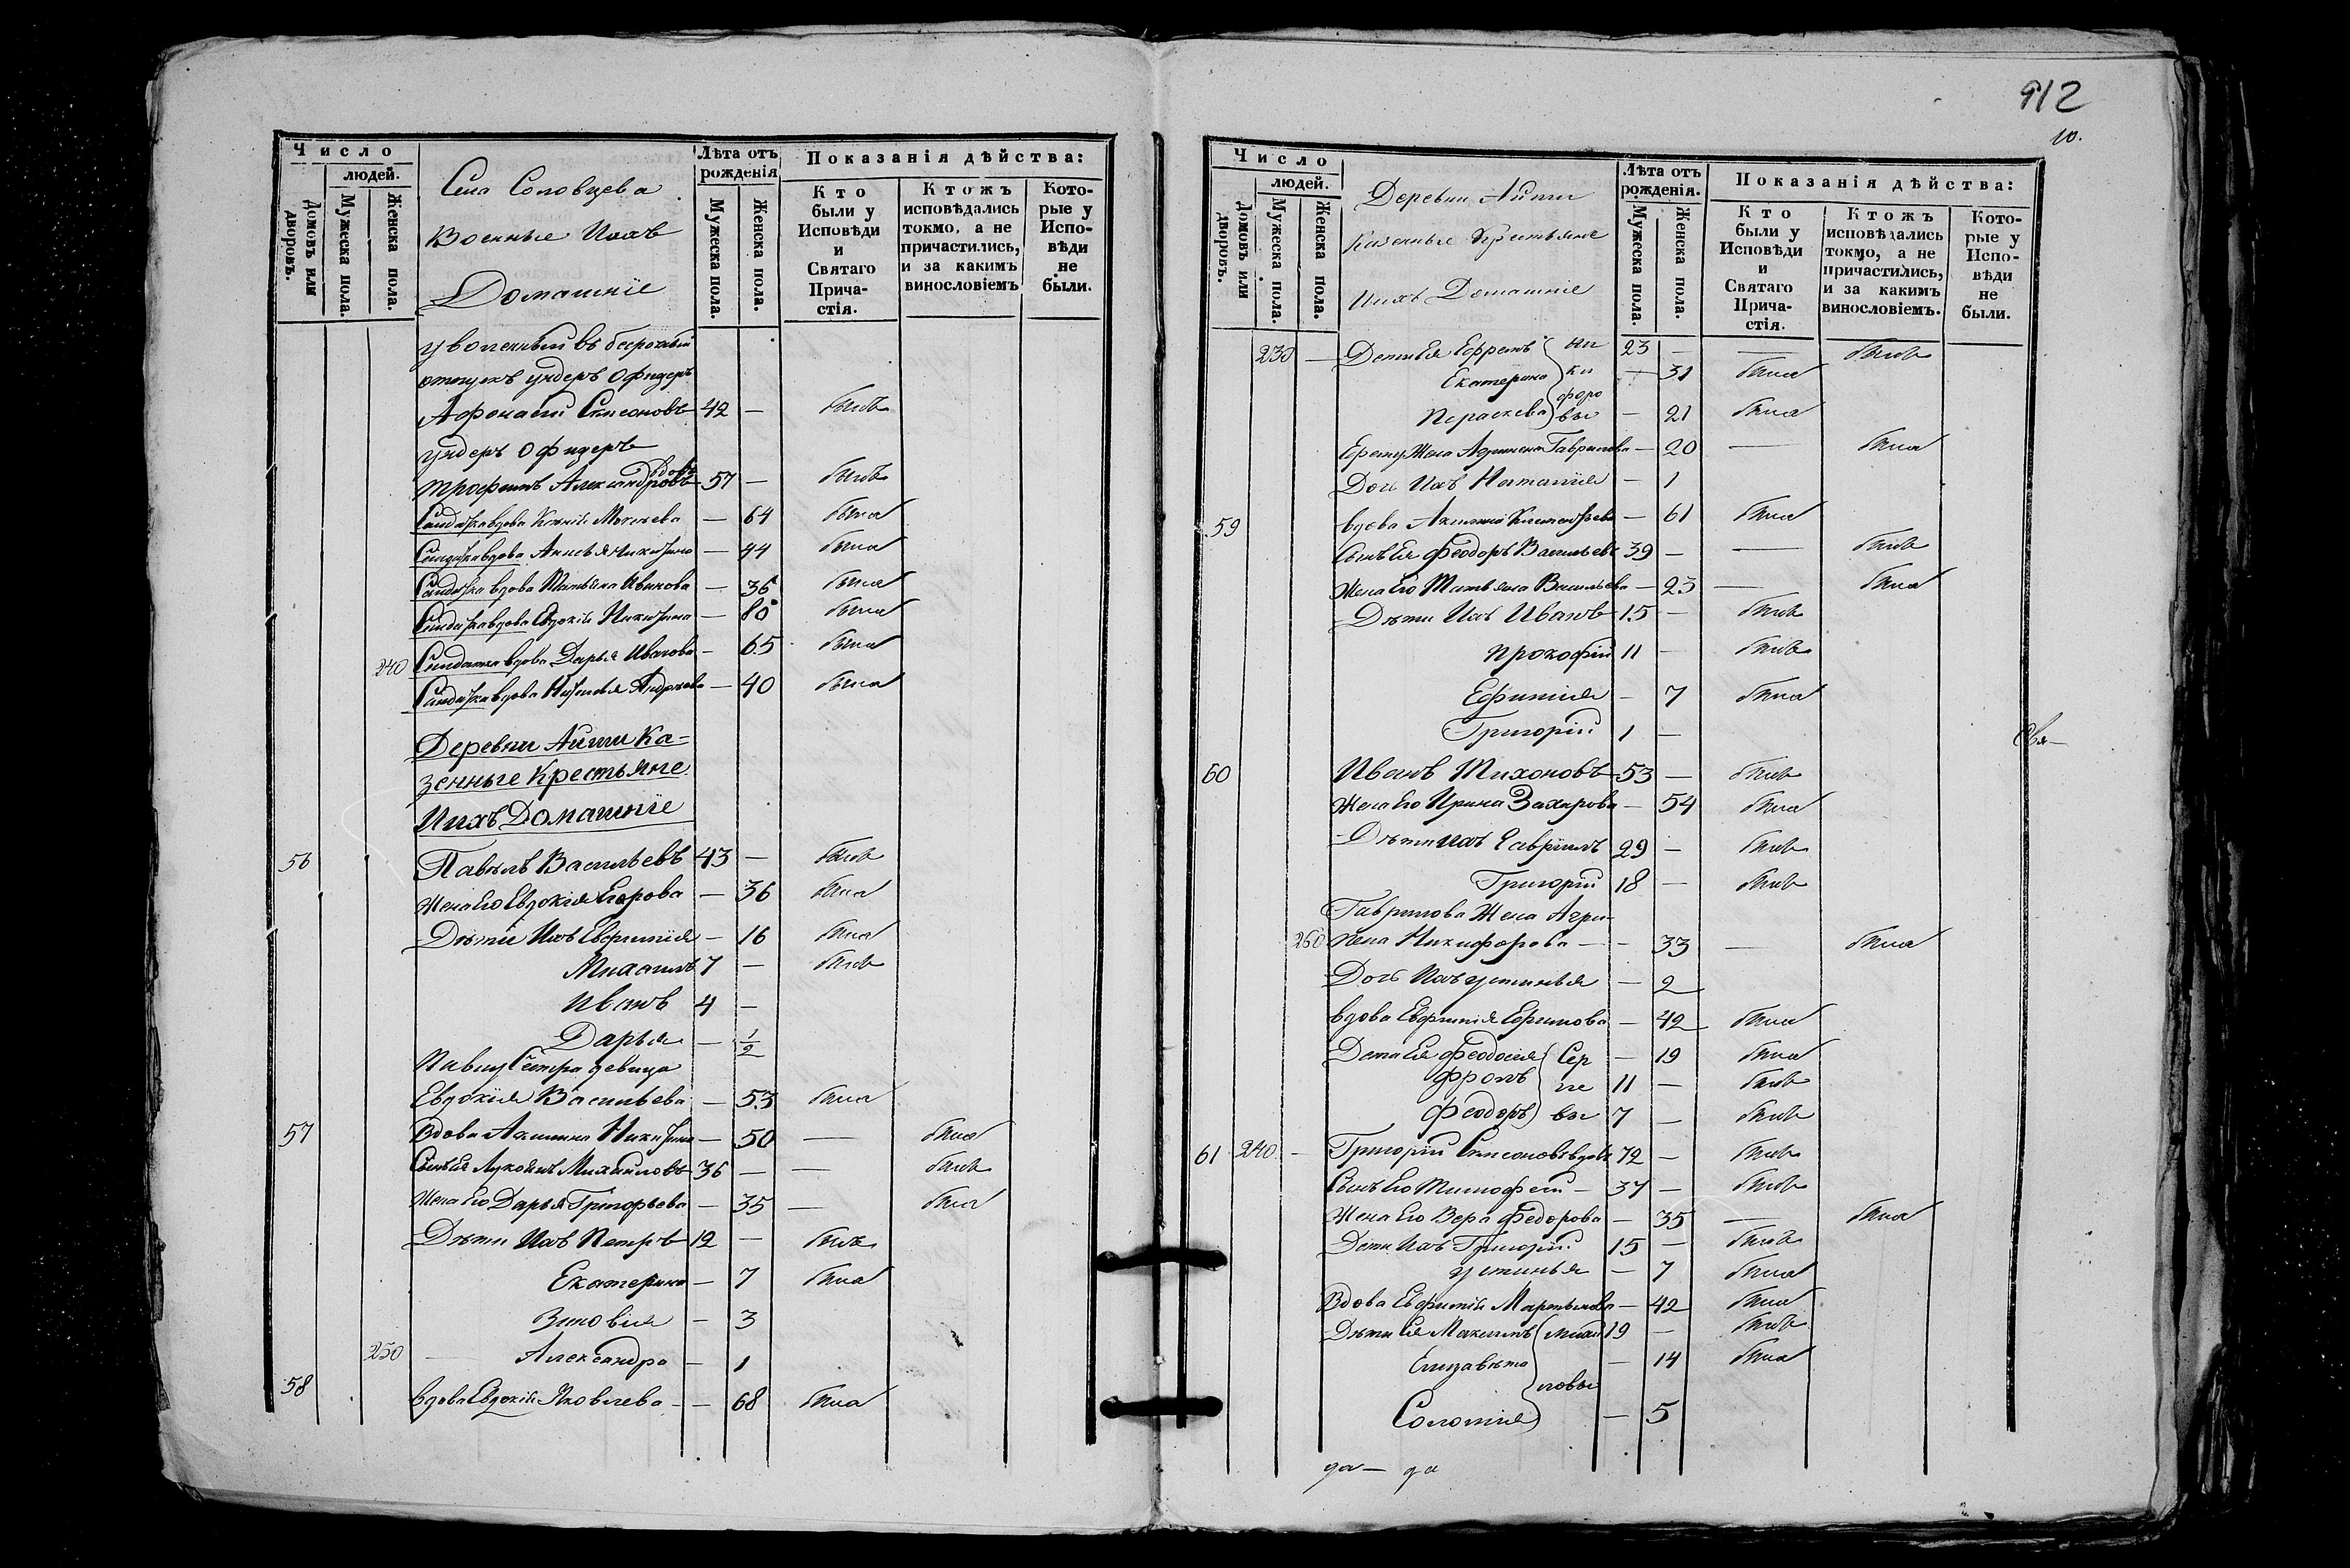 Число
людей.
Домовъ или дворовъ.
Мужеска пола.
Женска пола.
Села Соловцева
Военные Ихъ
Домашнiе
Лѣта отъ рожденiя
Мужеска пола.
Женска пола.
Показанiя дѣйства:
Кто были у Исповѣди и Святаго Прича-стiя.
Ктожъ исповѣдались токмо, а не причастились, и за какимъ винословiемъ
Кото-рые у Испо-вѣди не были.
уволенный въ безсрочный
отпускъ ундеръ Офицеръ
Афонасiй Симсоновъ 42 — былъ
ундеръ Офицеръ
вдовъ
Трофимъ Александровъ 57 — былъ
Салдатка вдова Матвѣева — 64 была
Салдатка вдова Анисья Никитина — 44 была
Салдатка вдова Татьяна Иванова — 36 была
Салдатка вдова Евдокiя Никитина — 80 была
240 Салдатка вдова Дарья Иванова — 65 была
Салдатка вдова Наталья Андреева — 40 была
Деревни Айши Ка-
зенные Крестьяне
Ихъ Домашнiе
56 Павелъ Васильевъ 43 — былъ
Жена Его Евдокiя Егорова — 36 была
Дѣти Ихъ Евфимiя — 16 была
Михаилъ 7 — былъ
Иванъ 4 —
Дарья — 1/2
Павлу Сестра девица
Евдокiя Васильева — 53 была
57 Вдова Акилина Никитина — 50 — была
Сынъ Ея Лукоянъ Михайловъ 36 — — былъ
Жена Его Дарья Григорьева — 35 — была
Дѣти Ихъ Петръ 12 — былъ
Екатерина — 7 была
Зиновия — 3
250 — Александра — 1
58 вдова Евдокiя Яковлева — 68 была
912
10.
Число
людей.
Домовъ или дворовъ.
Мужеска пола.
Женска пола.
Деревни Айши
Казенные Крестьяне
Ихъ Домашнiе
Лѣта отъ рожденiя.
Мужеска пола.
Женска пола.
Показанiя дѣйства:
Кто были у Исповѣди и Святаго Прича-стiя.
Ктожъ исповѣдались токмо, а не причастились, и за какимъ винословiемъ.
Кото-рые у Испо-вѣди не были.
230 — Дети Ея Ефремъ Ни 23 — — былъ
Екатерина ки — 31 была
форо
Параскева вы — 21 была
Ефрему Жена Агрипена Гаврилова — 20 — была
Дочь Ихъ Наталия — 1
59 вдова Акилина Климентьева — 61 была
Сынъ Ея Феодоръ Васильевъ 39 — — былъ
Жена Его Татьяна Васильева — 23 — была
Дѣти Ихъ Иванъ 15 — былъ
Прокофiй 11 — былъ
Ефимия — 7 была
Григорiй 1 —
60 Иванъ Тихоновъ 53 — былъ
Жена Его Ирина Захарова — 54 была
Дѣти Ихъ Гаврiилъ 29 — былъ
Григорiй 18 — былъ
Гаврилова Жена Агри-
260 пена Никифорова — 33 — была
Дочь Ихъ Устинья — 2
вдова Евфимiя Ефимова — 42 была
Дети Ея Феодосiя Сер — 19 была
Фролъ ге 11 — былъ
Феодоръ вы 7 — былъ
61 240 — Григорiй Симсоновъ вдовъ 72 — былъ
Сынъ Его Тимофей — 37 — былъ
Жена Его Вера Федорова — 35 — была
Дети Ихъ Григорiй 15 — былъ
Устинья — 7 была
Вдова Евфимiя Мартынова — 42 была
Дѣти Ея Максимъ Михай 19 — былъ
Елизавета — 14 была
ловы
Соломия — 5